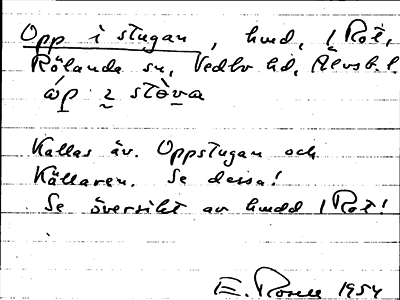 Opp i stugan, hmd, 1 Rot,
Rölanda sn, Vedbo hd, Älvsb. l.
Kallas äv. Oppstugan och
Källaren. Se dessa!
Se översikt av hmdd 1 Rot!
E. Rosell 1954